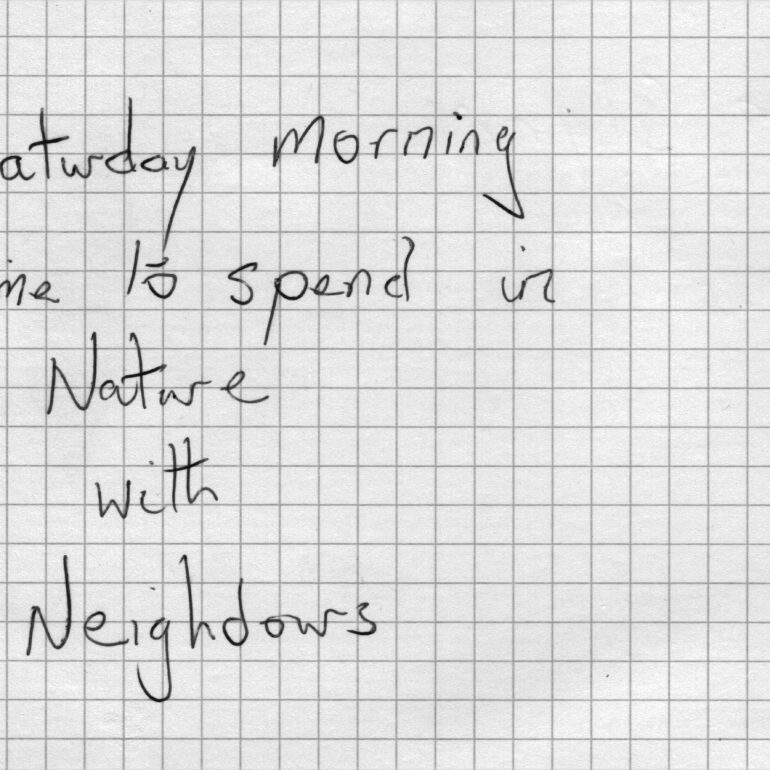 aturday morning
me to spend in
Nature
with
Neighdows